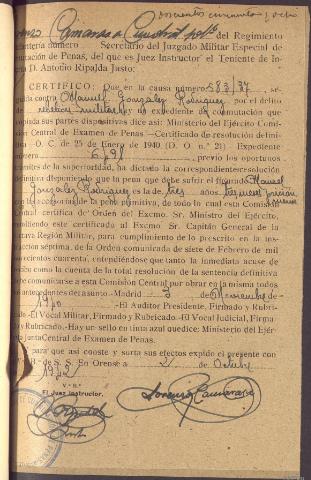 Doscientos cincuenta y ocho
Lorenzo Camarasa del Regimiento
Infantería número Secretario del Juzgado Militar Especial de
ecución de Penas, del que es Juez Instructor el Teniente de In-
tería D. Antonio Ripalda Justo:
CERTIFICO: Que en la causa número 683/37, se-
guida contra Manuel González Rodríguez, por el delito
de rebelión militar, no expediente de conmutación que
copiada sus partes dispositivas dice así: Ministerio del Ejército Comi-
sión Central de Examen de Penas.—Certificado de resolución defini-
tiva—O. C. de 25 de Enero de 1940 (D. O. n.º 21) Expediente
número previo los oportunos
trámites de la superioridad, ha dictado la correspondiente resolución
definitiva disponiendo que la pena que debe sufrir el firmado Manuel
González Rodríguez es la de tres años prisión
menor
con las accesorias de la pena definitiva, de todo lo cual esta Comisión
Central certifica de Orden del Excmo. Sr. Ministro del Ejército,
remitiendo este certificado al Excmo. Sr. Capitán General de la
Octava Región Militar, para cumplimiento de lo prescrito en la ins-
trucción séptima, de la Orden comunicada de siete de Febrero de mil
novecientos cuarenta, entendiéndose que tanto la inmediata acuse de
recibo como la cuenta de la total resolución de la sentencia definitiva
debe comunicarse a esta Comisión Central por obrar en la misma todos
los antecedentes del asunto.—Madrid 7 de Noviembre de
1940.—El Auditor Presidente, Firmado y Rubri-
cado.—El Vocal Militar, Firmado y Rubricado.—El Vocal Judicial, Firma-
do y Rubricado.—Hay un sello en tinta azul que dice: Ministerio del Ejér-
cito Junta Central de Examen de Penas.
Y para que así conste y surta sus efectos expido el presente con
V.º B.º de S. S. En Orense a 21 de Octubre
1942
V.º B.º
El Juez instructor,
Lorenzo Camarasa